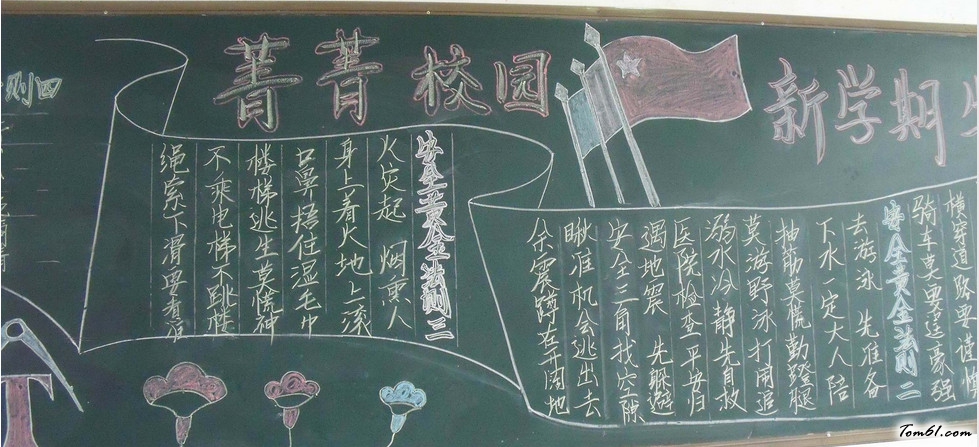 则四
菁菁校园
新学期
横穿道路要谨慎
骑车莫要逞豪强
安全黄金法则二
去游泳 先准备
下水一定大人陪
抽筋莫慌勤蹬腿
莫游野泳打闹追
溺水冷静先自救
医院检查平安归
遇地震 先躲避
安全三角找空隙
瞅准机会逃出去
余震蹲在开阔地
安全黄金法则三
火灾起 烟熏人
身上着火地上滚
口鼻捂住湿毛巾
楼梯逃生莫慌神
不乘电梯不跳楼
绳索下滑要看准
Tom61.com